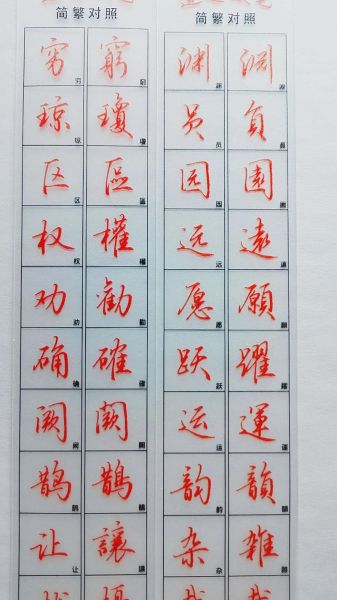 简繁对照
穷 窮
琼 瓊
区 區
权 權
劝 勸
确 確
阙 闕
鹊 鵲
让 讓
简繁对照
渊 淵
员 員
园 園
远 遠
愿 願
跃 躍
运 運
韵 韻
杂 雜